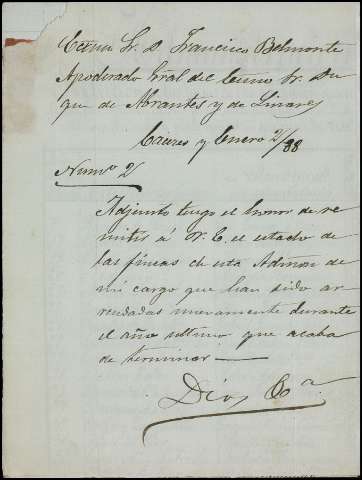 Excmo Sr. D. Francisco Belmonte
Apoderado Gral del Excmo Sr. Du
que de Abrantes y de Linares
Cáceres y Enero 2/88
Numº 2
Adjunto tengo el honor de re
mitir á V. E. el estado de
las fincas de esta Admon de
mi cargo que han sido ar
rendadas nuevamente durante
el año ultimo que acaba
de terminar
Dios &ª